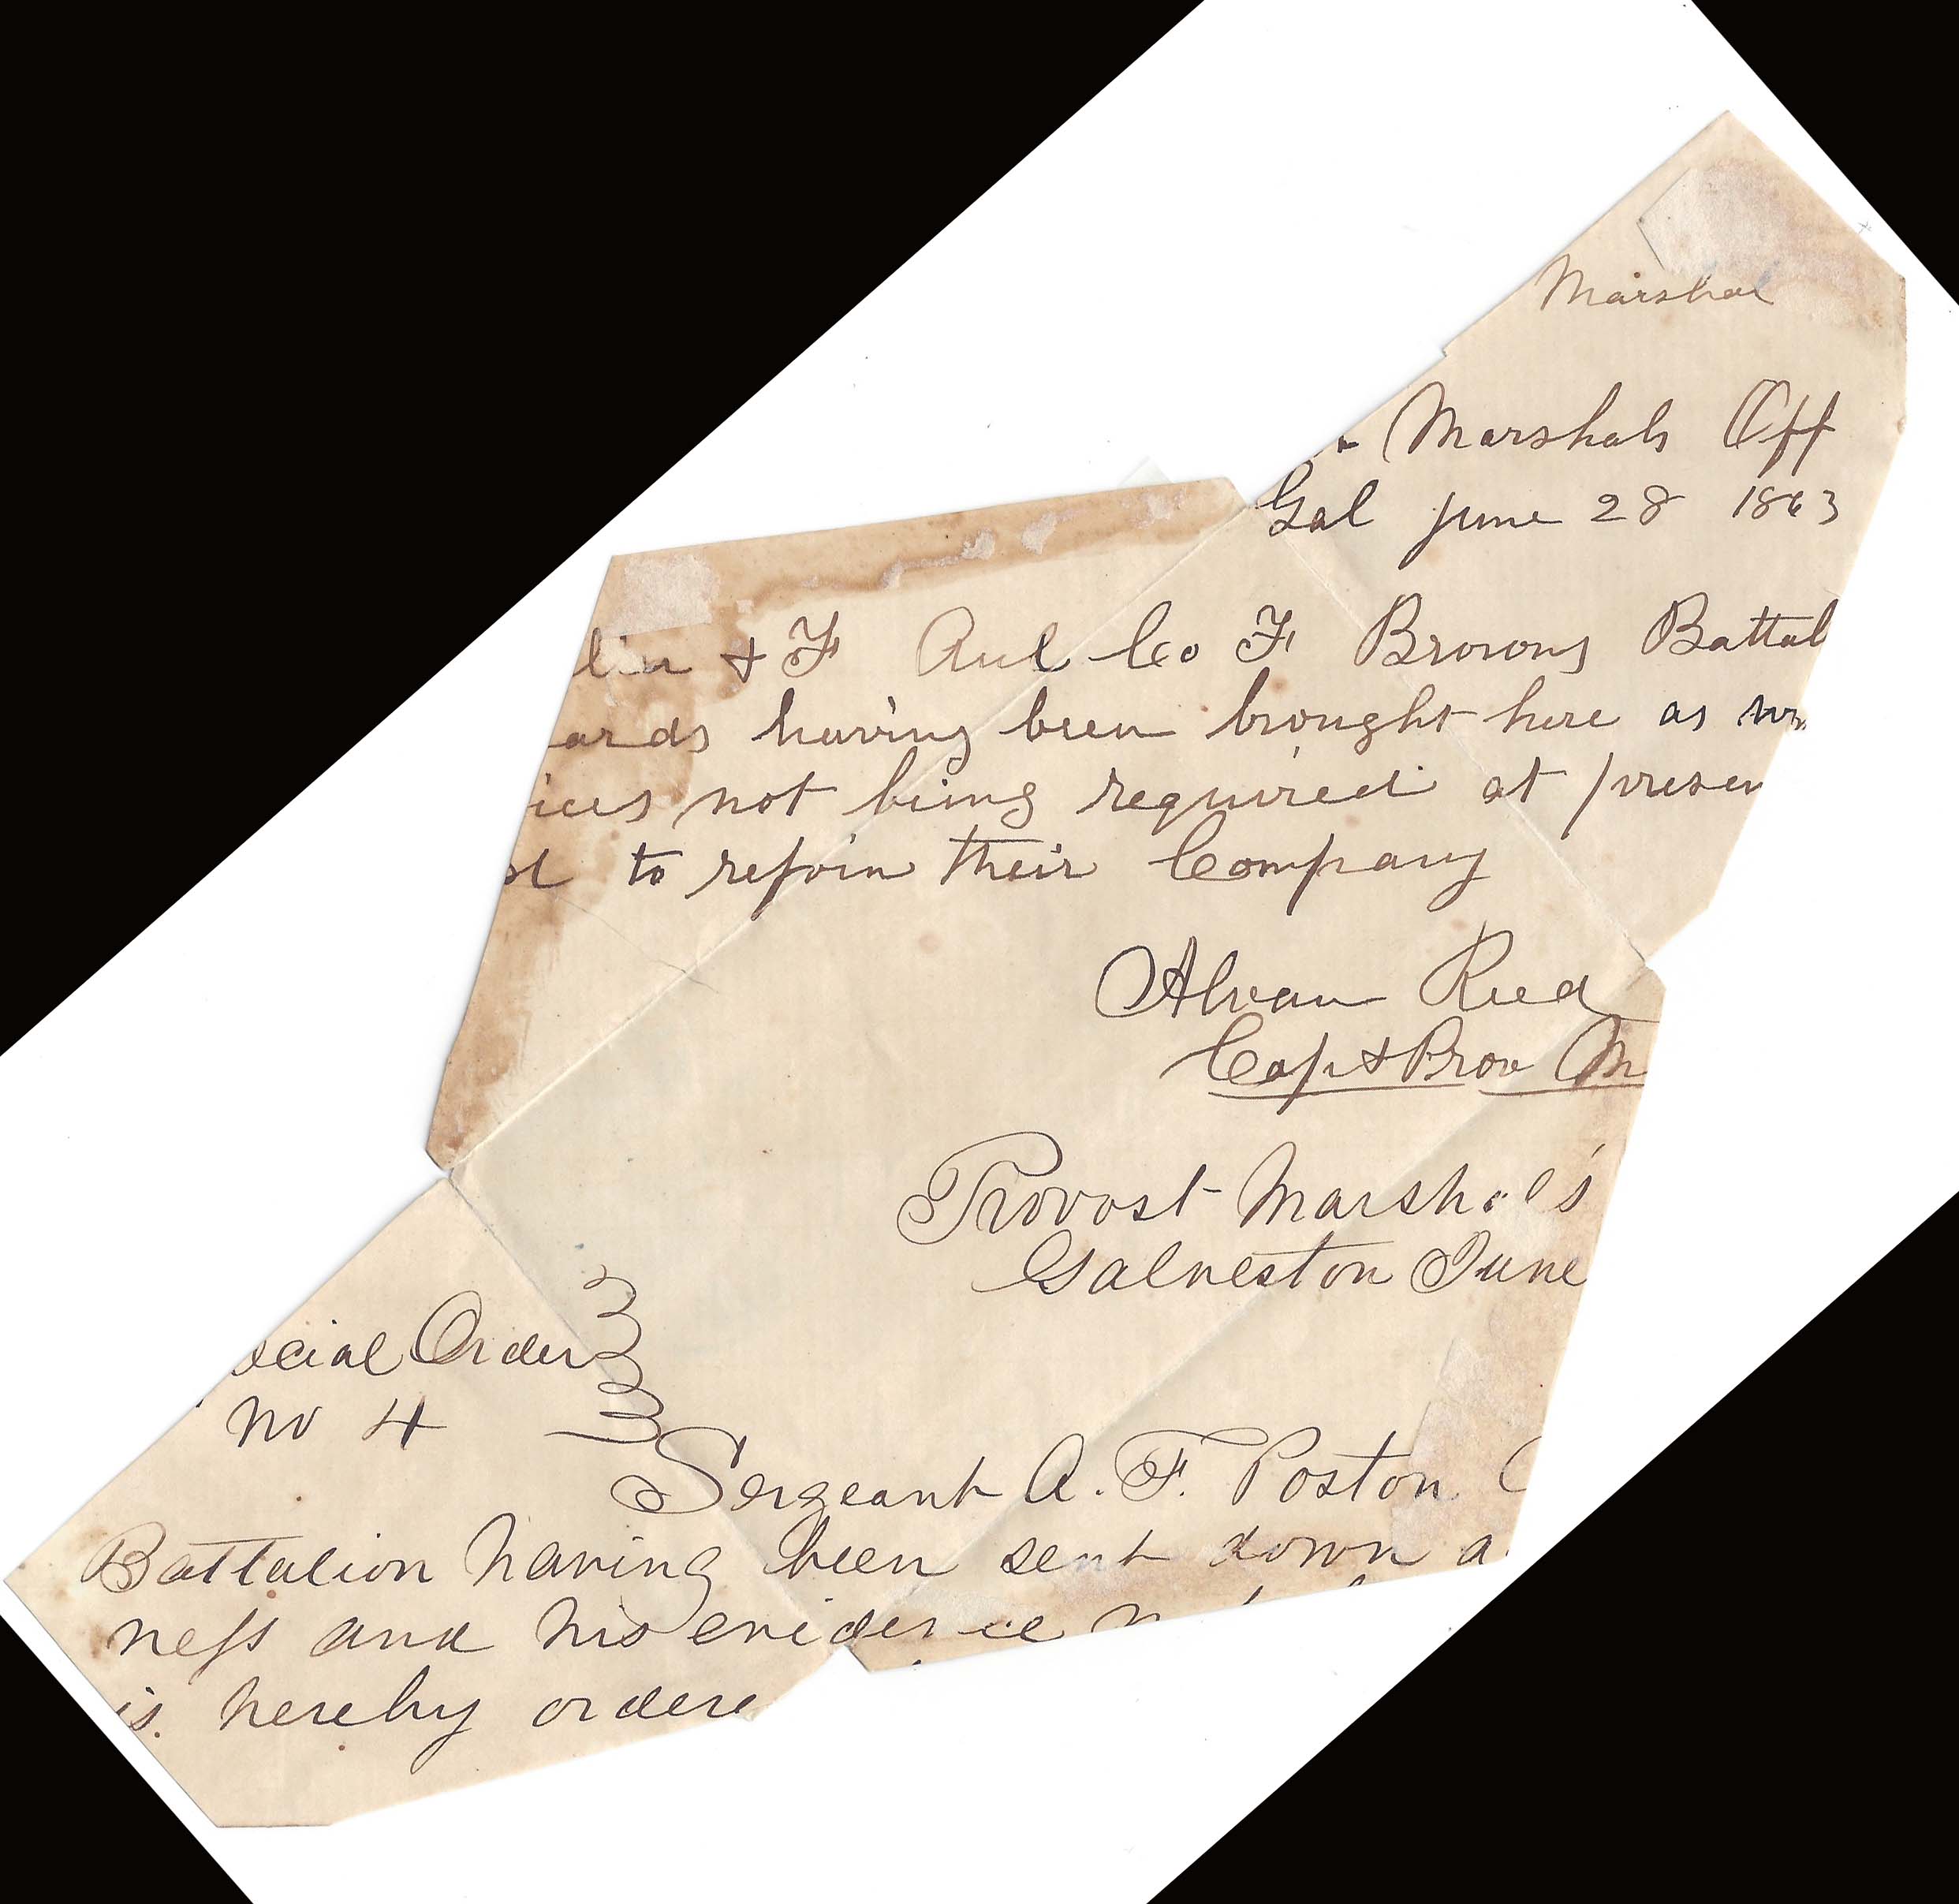 Marshal
Marshals Off
Gal June 28 1863
& F Aul Co F Browns Battal
ards having been brought here as
ices not being required at presen
to rejoin their Company
Alvan Reed
Capt & Prov M
Provost Marshal's
Galveston June
ecial Order
No 4
Sergeant A. F. Poston C
Battalion having been sent down a
ness and his evidence
is hereby ordere